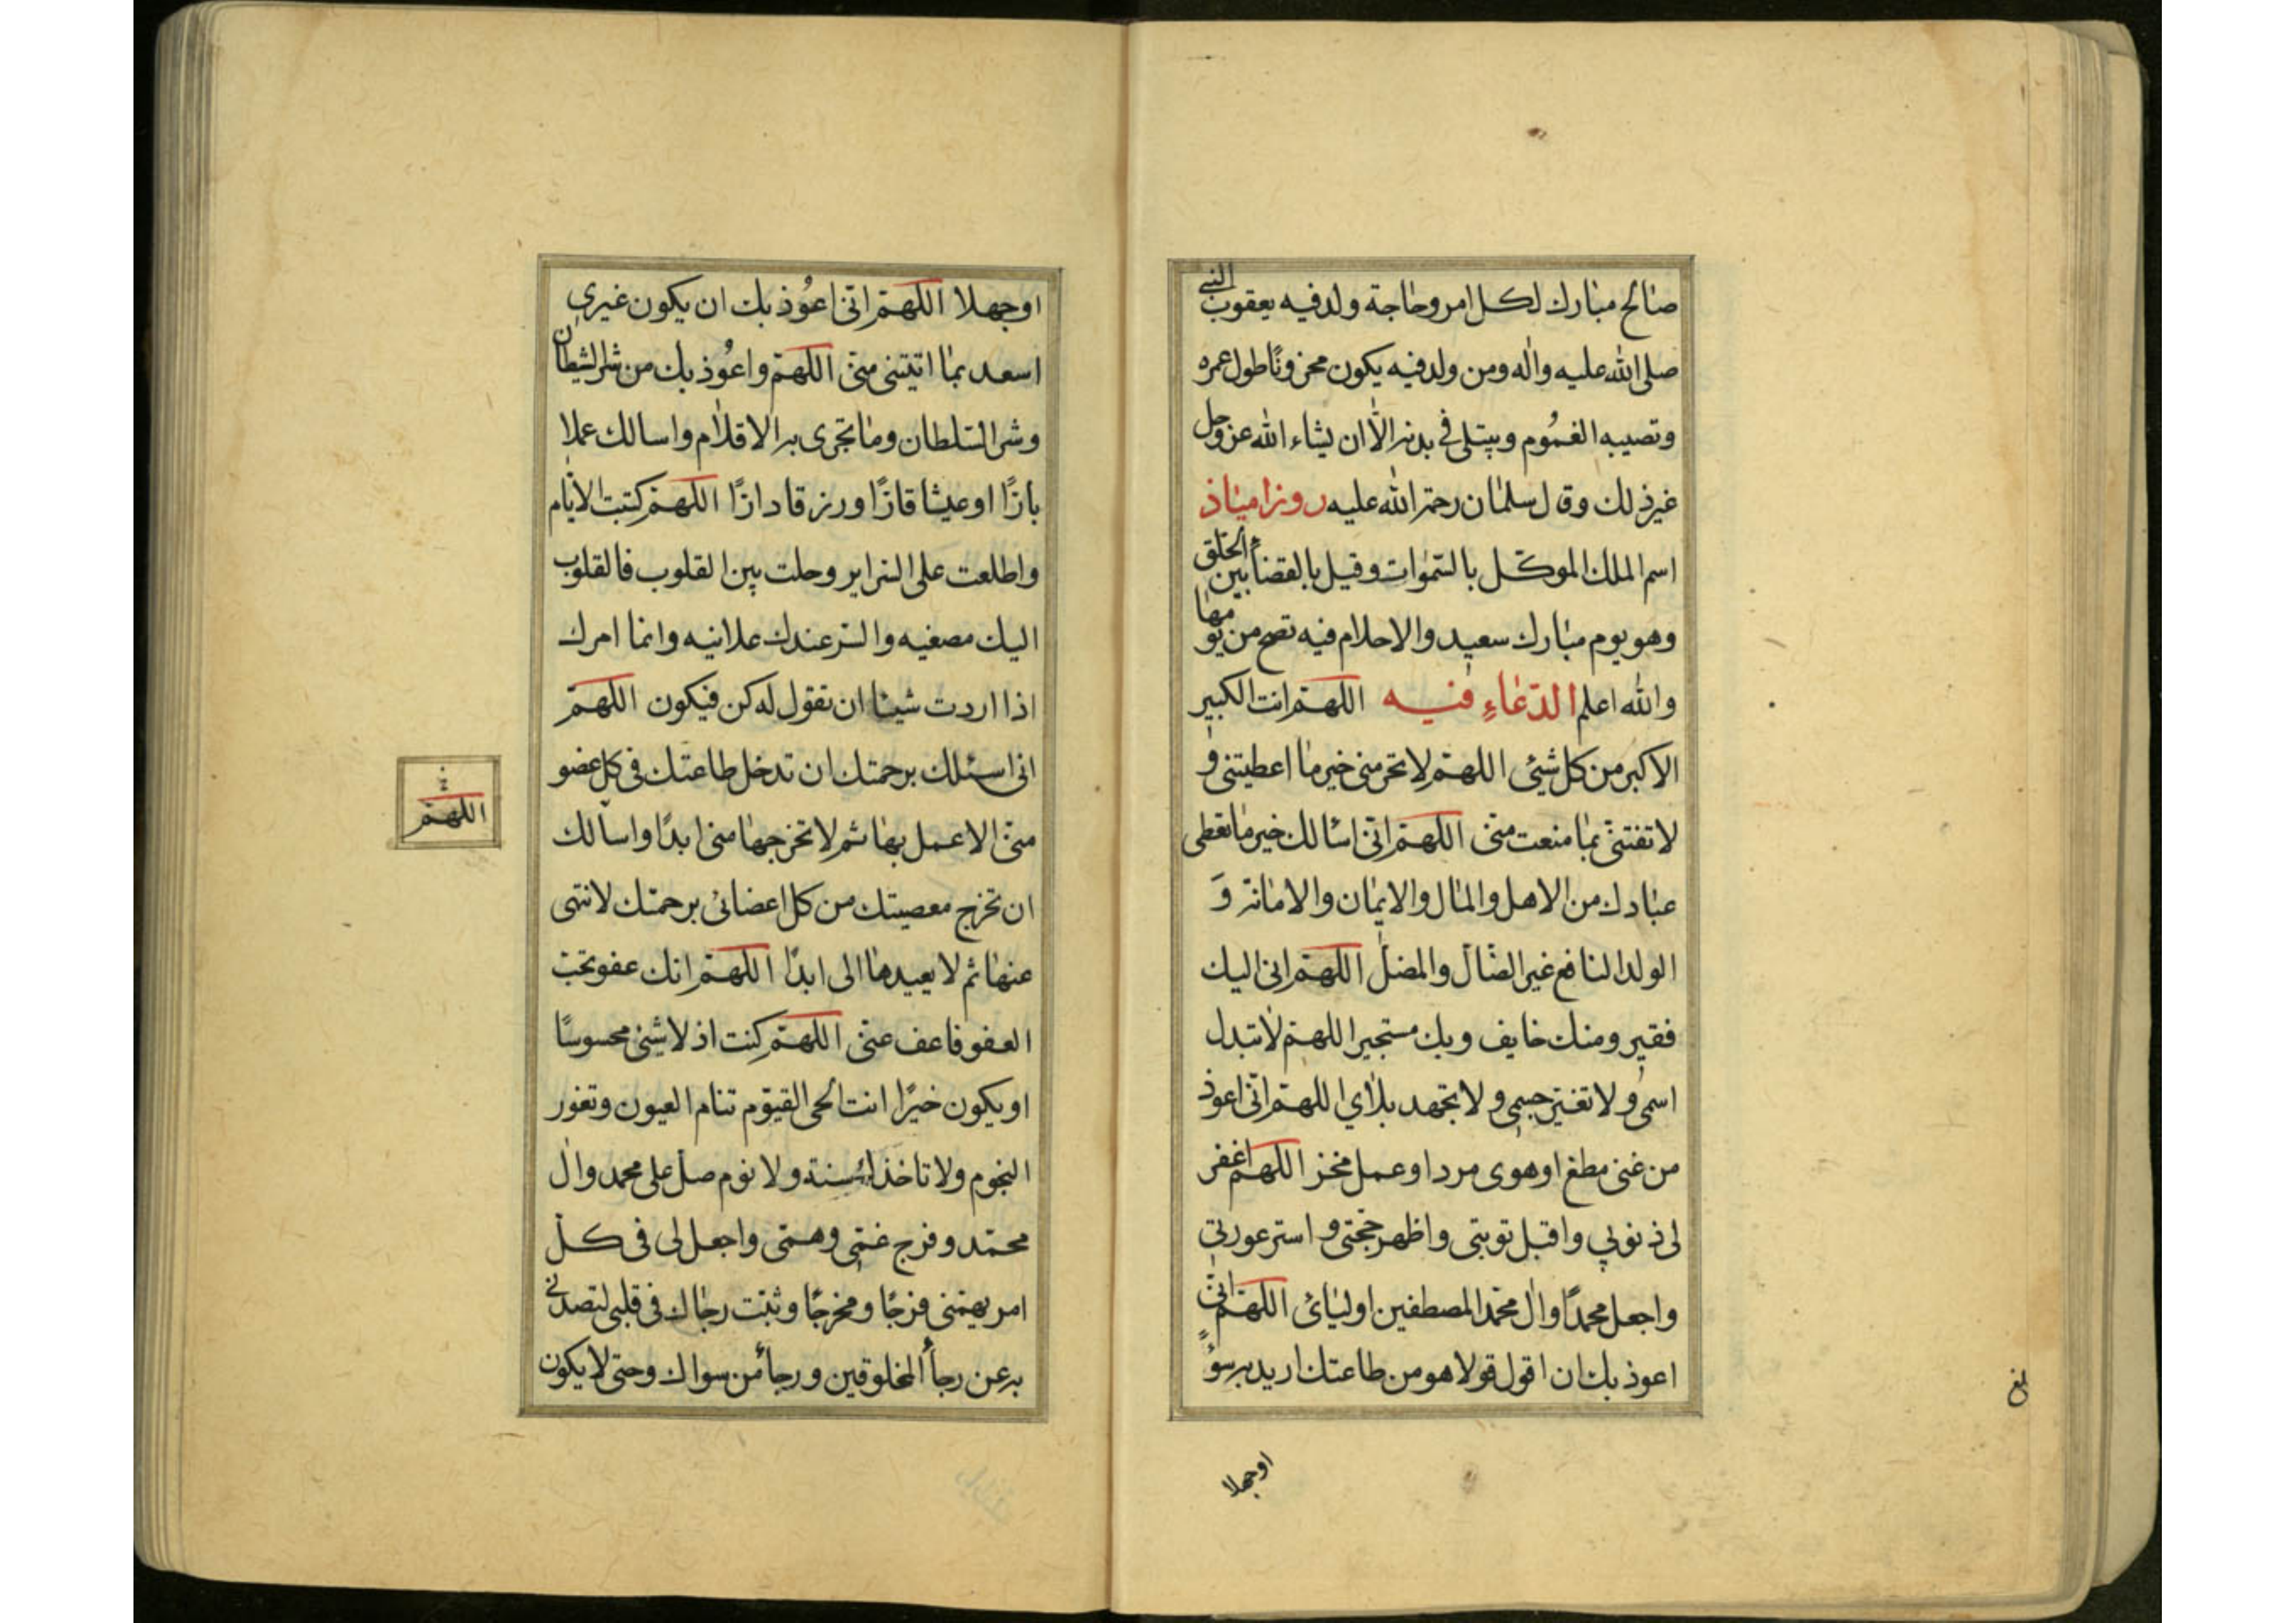 صالح مبارك لكل امر وحاجة ولد فيه يعقوب النبي
صلى الله عليه واله ومن ولد فيه يكون محزونًا طول عمره
وتصيبه الغموم ويبتلى في بدنه الّا ان يشاء الله عز وجل
غير ذلك وقال سلمان رحمة الله عليه روز اميناذ
اسم الملك الموكّل بالسّموات وقيل بالقضاء بين الخلق
وهو يوم مبارك سعيد والاحلام فيه تصح من يومها
والله اعلم الدّعاءِ فيه اللهمّ انت الكبير
الاكبر من كل شيئ اللهمّ لا تحرمنى خير ما اعطيتنى و
لا تفتنّى بما منعت منّى اللهمّ انّى اسالك خير ما تعطى
عبادك من الاهل والمال والايمان والامانة وَ
الولد النافع غير الضّال والمضل اللهمّ انى اليك
فقير ومنك خايف وبك مستجير اللهمّ لا تبدل
اسمى ولا تغيّر جسمى ولا تجهد بلاءي اللهمّ انّى اعوذ
من غنى مطغ او هوى مرد او عمل مخز اللهمّ اغفر
لى ذنوبي واقبل توبتى واظهر حجّتى و استر عورتي
واجعل محمدًا وال محمّد المصطفين اوليائ اللهمّ انّى
اعوذ بك ان اقول قولا هو من طاعتك اريد به سوءً
اوجهلا
بلغ
اوجهلا اللهمّ انّى اعُوذ بك ان يكون غيرى
اسعد بما اتيتنى منّى اللهمّ واعُوذ بك من شر الشيطان
وشر السّلطان وما تجرى به الاقلام واسالك عملا
بارًّا او عيشا قارًّا ورزقا دارًّا اللهمّ كتبت الاثام
واطلعت على السراير وحلت بين القلوب فالقلوب
اليك مصغيه والسّر عندك علانيه وانما امرك
اذا اردت شيئا ان تقول له كن فيكون اللهمّ
انى اسئلك برحمتك ان تدخل طاعتك فى كل عضو
منّى الاعمل بها ثم لا تخرجها منى ابدًا واسألك
ان تخرج معصيتك من كل اعضائى برحمتك لانتهى
عنها ثم لا يعيدها الى ابدًا اللهمّ انك عفو تحب
العفو فاعف عنّى اللهمّ كنت اذ لا شئ محسوسًا
او يكون خيرًا انت الحى القيّوم تنام العيون وتغور
النجوم ولا تاخذك سنة ولا نوم صل على محمد وال
محمّد وفرج غمّى وهمّى واجعل لى فى كل
امر يهمّنى فرجًا ومخرجًا وثبّت رجاك فى قلبى لتصدنى
به عن رجأ المخلوقين ورجأ من سواك وحتى لا يكون
اللهمّ